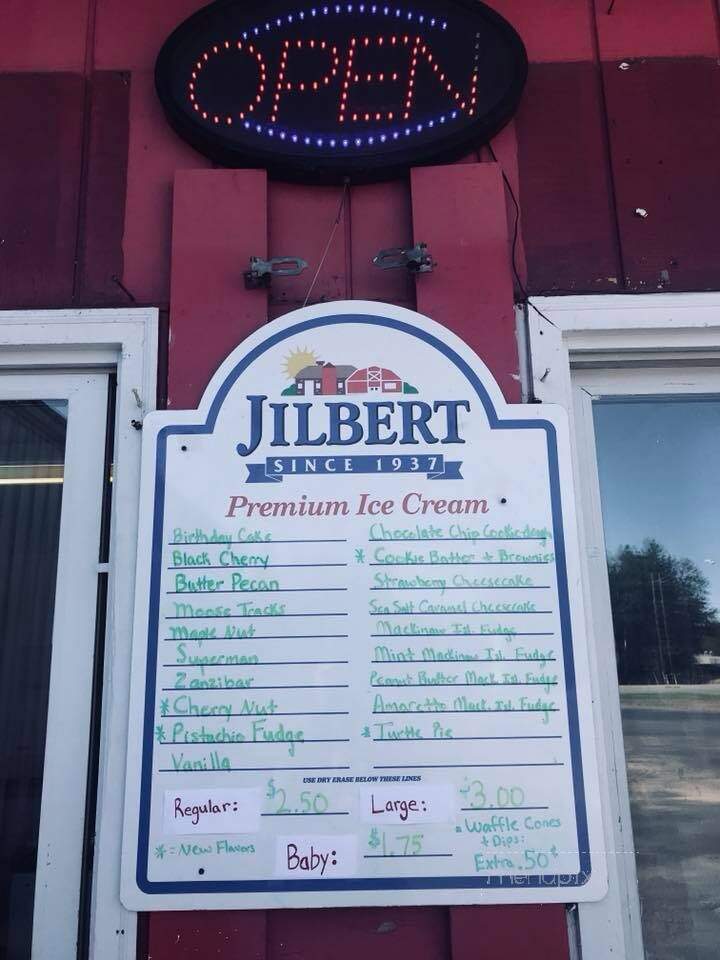 OPEN
JILBERT
SINCE 1937
Premium Ice Cream
Birthday Cake
Black Cherry
Butter Pecan
Moose Tracks
Maple Nut
Superman
Zanzibar
* Cherry Nut
* Pistachio Fudge
Vanilla
Chocolate Chip Cookie dough
* Cookie Batter + Brownies
Strawberry Cheesecake
Sea Salt Caramel Cheesecake
Mackinaw Isl. Fudge
Mint Mackinaw Isl. Fudge
Peanut Butter Mack. Isl. Fudge
Amaretto Mack. Isl. Fudge
* Turtle Pie
USE DRY ERASE BELOW THESE LINES
Regular: $2.50 Large: $3.00
* = New Flavors Baby: $1.75
• Waffle Cones
+ Dips:
Extra .50¢
menupix